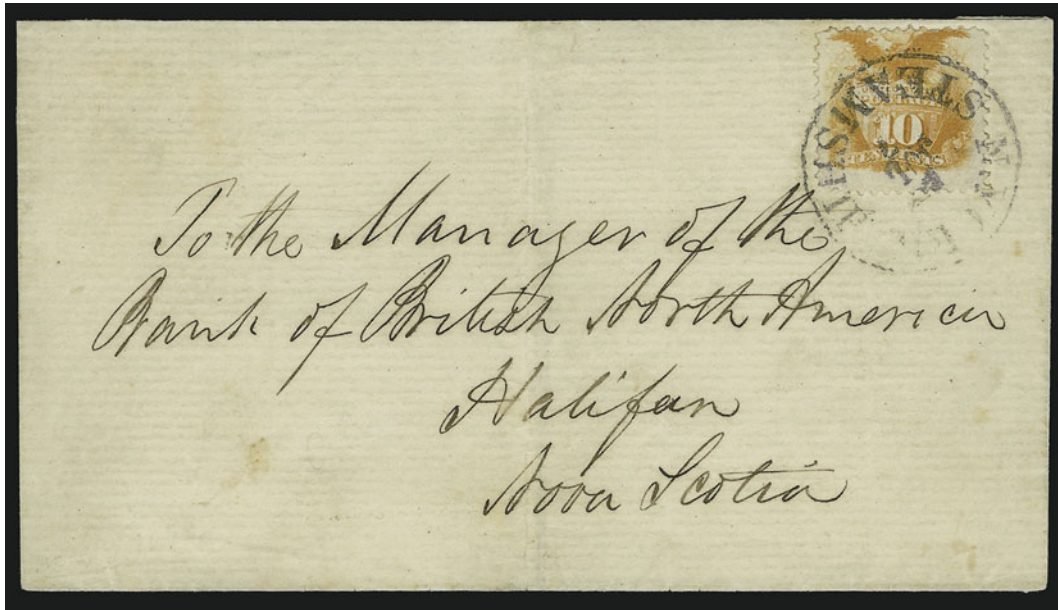 10
TEN CENTS
STEAMSHIP
To the Manager of the
Bank of British North America
Halifax
Nova Scotia